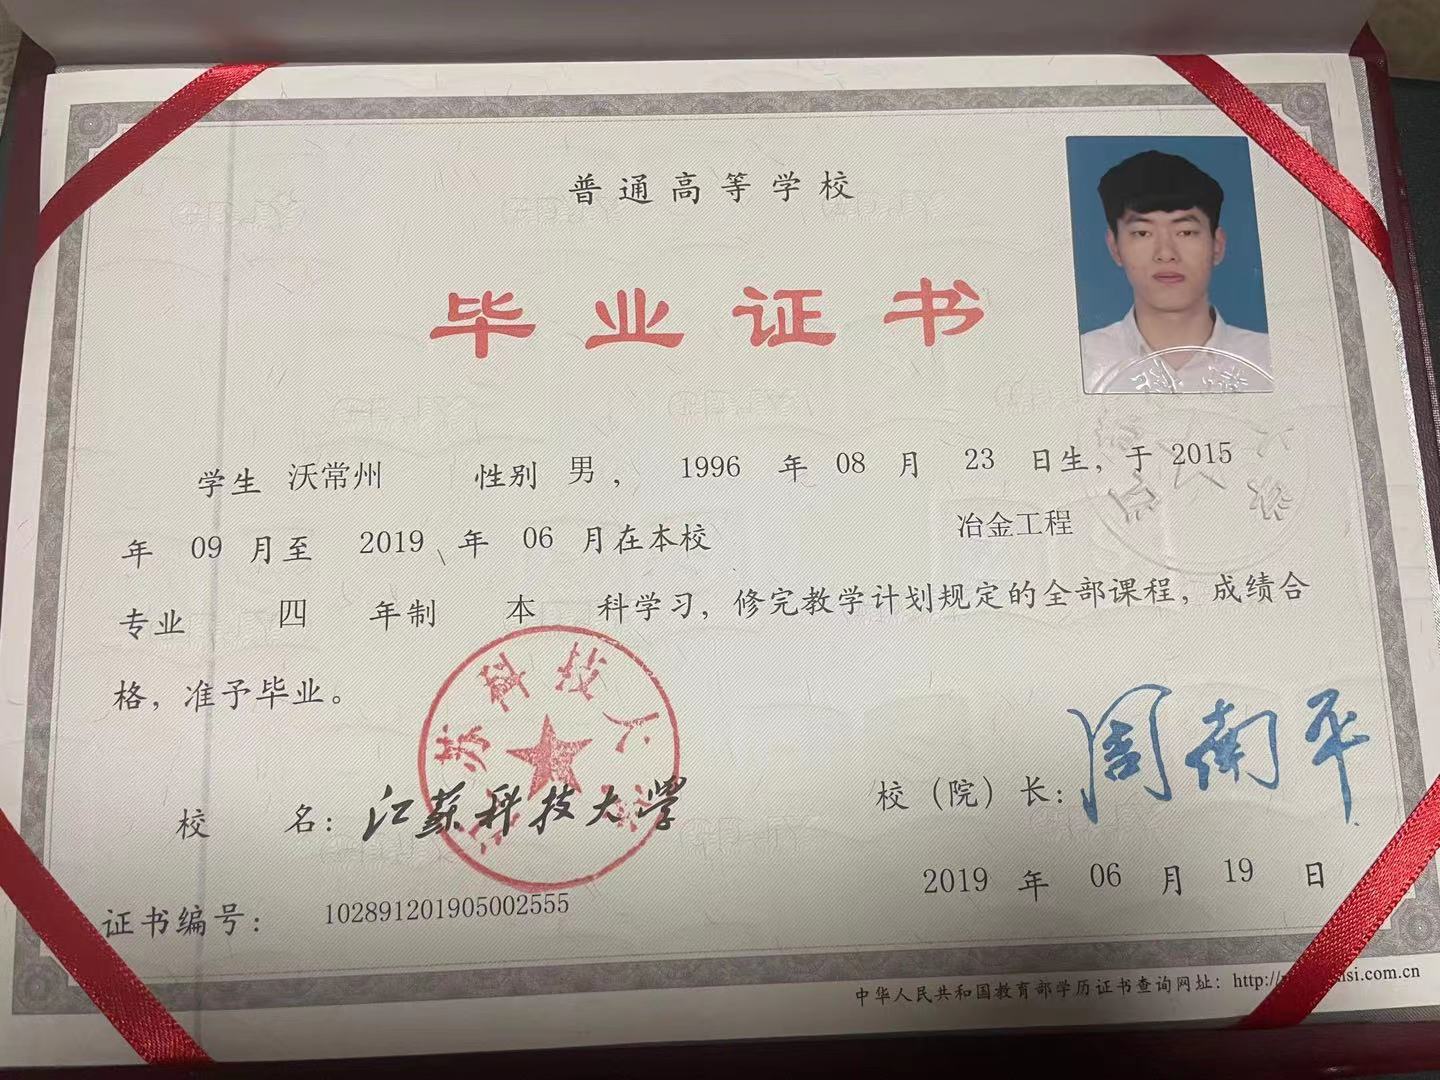 普通高等学校
毕业证书
学生 沃常州 性别 男， 1996 年 08 月 23 日生，于 2015
年 09 月至 2019 年 06 月在本校 冶金工程
专业 四 年制 本 科学习，修完教学计划规定的全部课程，成绩合
格，准予毕业。
江苏科技大学
校 名：江苏科技大学 校（院）长：周南平
2019 年 06 月 19 日
证书编号： 102891201905002555
中华人民共和国教育部学历证书查询网址：http://
si.com.cn